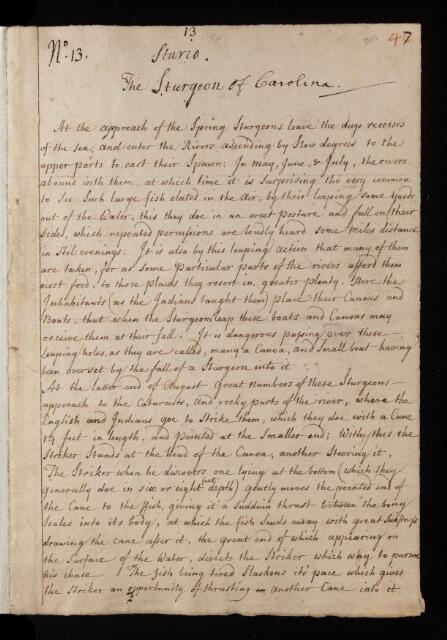 13
47
No. 13.
Sturio.
The Sturgeon of Carolina.
At the approach of the Spring Sturgeons leave the deep recesses
of the sea, and enter the Rivers ascending by slow degrees to the
upper parts to cast their Spawn: In may, June, & July, the rivers
abound with them, at which time it is Surprizing tho very common
to see Such large fish elated in the Air, by their leaping some yards
out of the Water, this they doe in an erect posture and fall on their
Sides, which repeated percussions are loudly heard some miles distance
in Stil evenings. It is also by this leaping action that many of them
are taken, for as some Particular parts of the rivers afford them
most food, to those places they resort in greater plenty. Here the
Inhabitants (as the Indians taught them) place their Canoas and
Boats, that when the Sturgeon leap these boats and Canoas may
receive them at their fall. It is dangerous passing over these
leaping holes, as they are called, many a Canoa, and Small boat having
been overset by the fall of a Sturgeon into it
At the latter end of August Great numbers of these Sturgeons
approach to the Cataracts, and rocky parts of the river, where the
English and Indians goe to Strike them, which they doe with a Cane
14 feet in length, and pointed at the Smaller end; With this the
Striker Stands at the head of the Canoa, another Steering it.
The Striker when he discovers one lying at the bottom (which they
generally doe in six or eight feet depth) gently moves the pointed end of
the Cane to the fish, giving it a Suddain thrust between the bony
Scales into its body, at which the fish Scuds away with great Swiftness
drawing the cane after it, the great end of which appearing on
the Surface of the Water, directs the Striker which way to pursue
his chace The fish being tired Slackens its pace which gives
the Striker an opportunity of thrusting another Cane into it